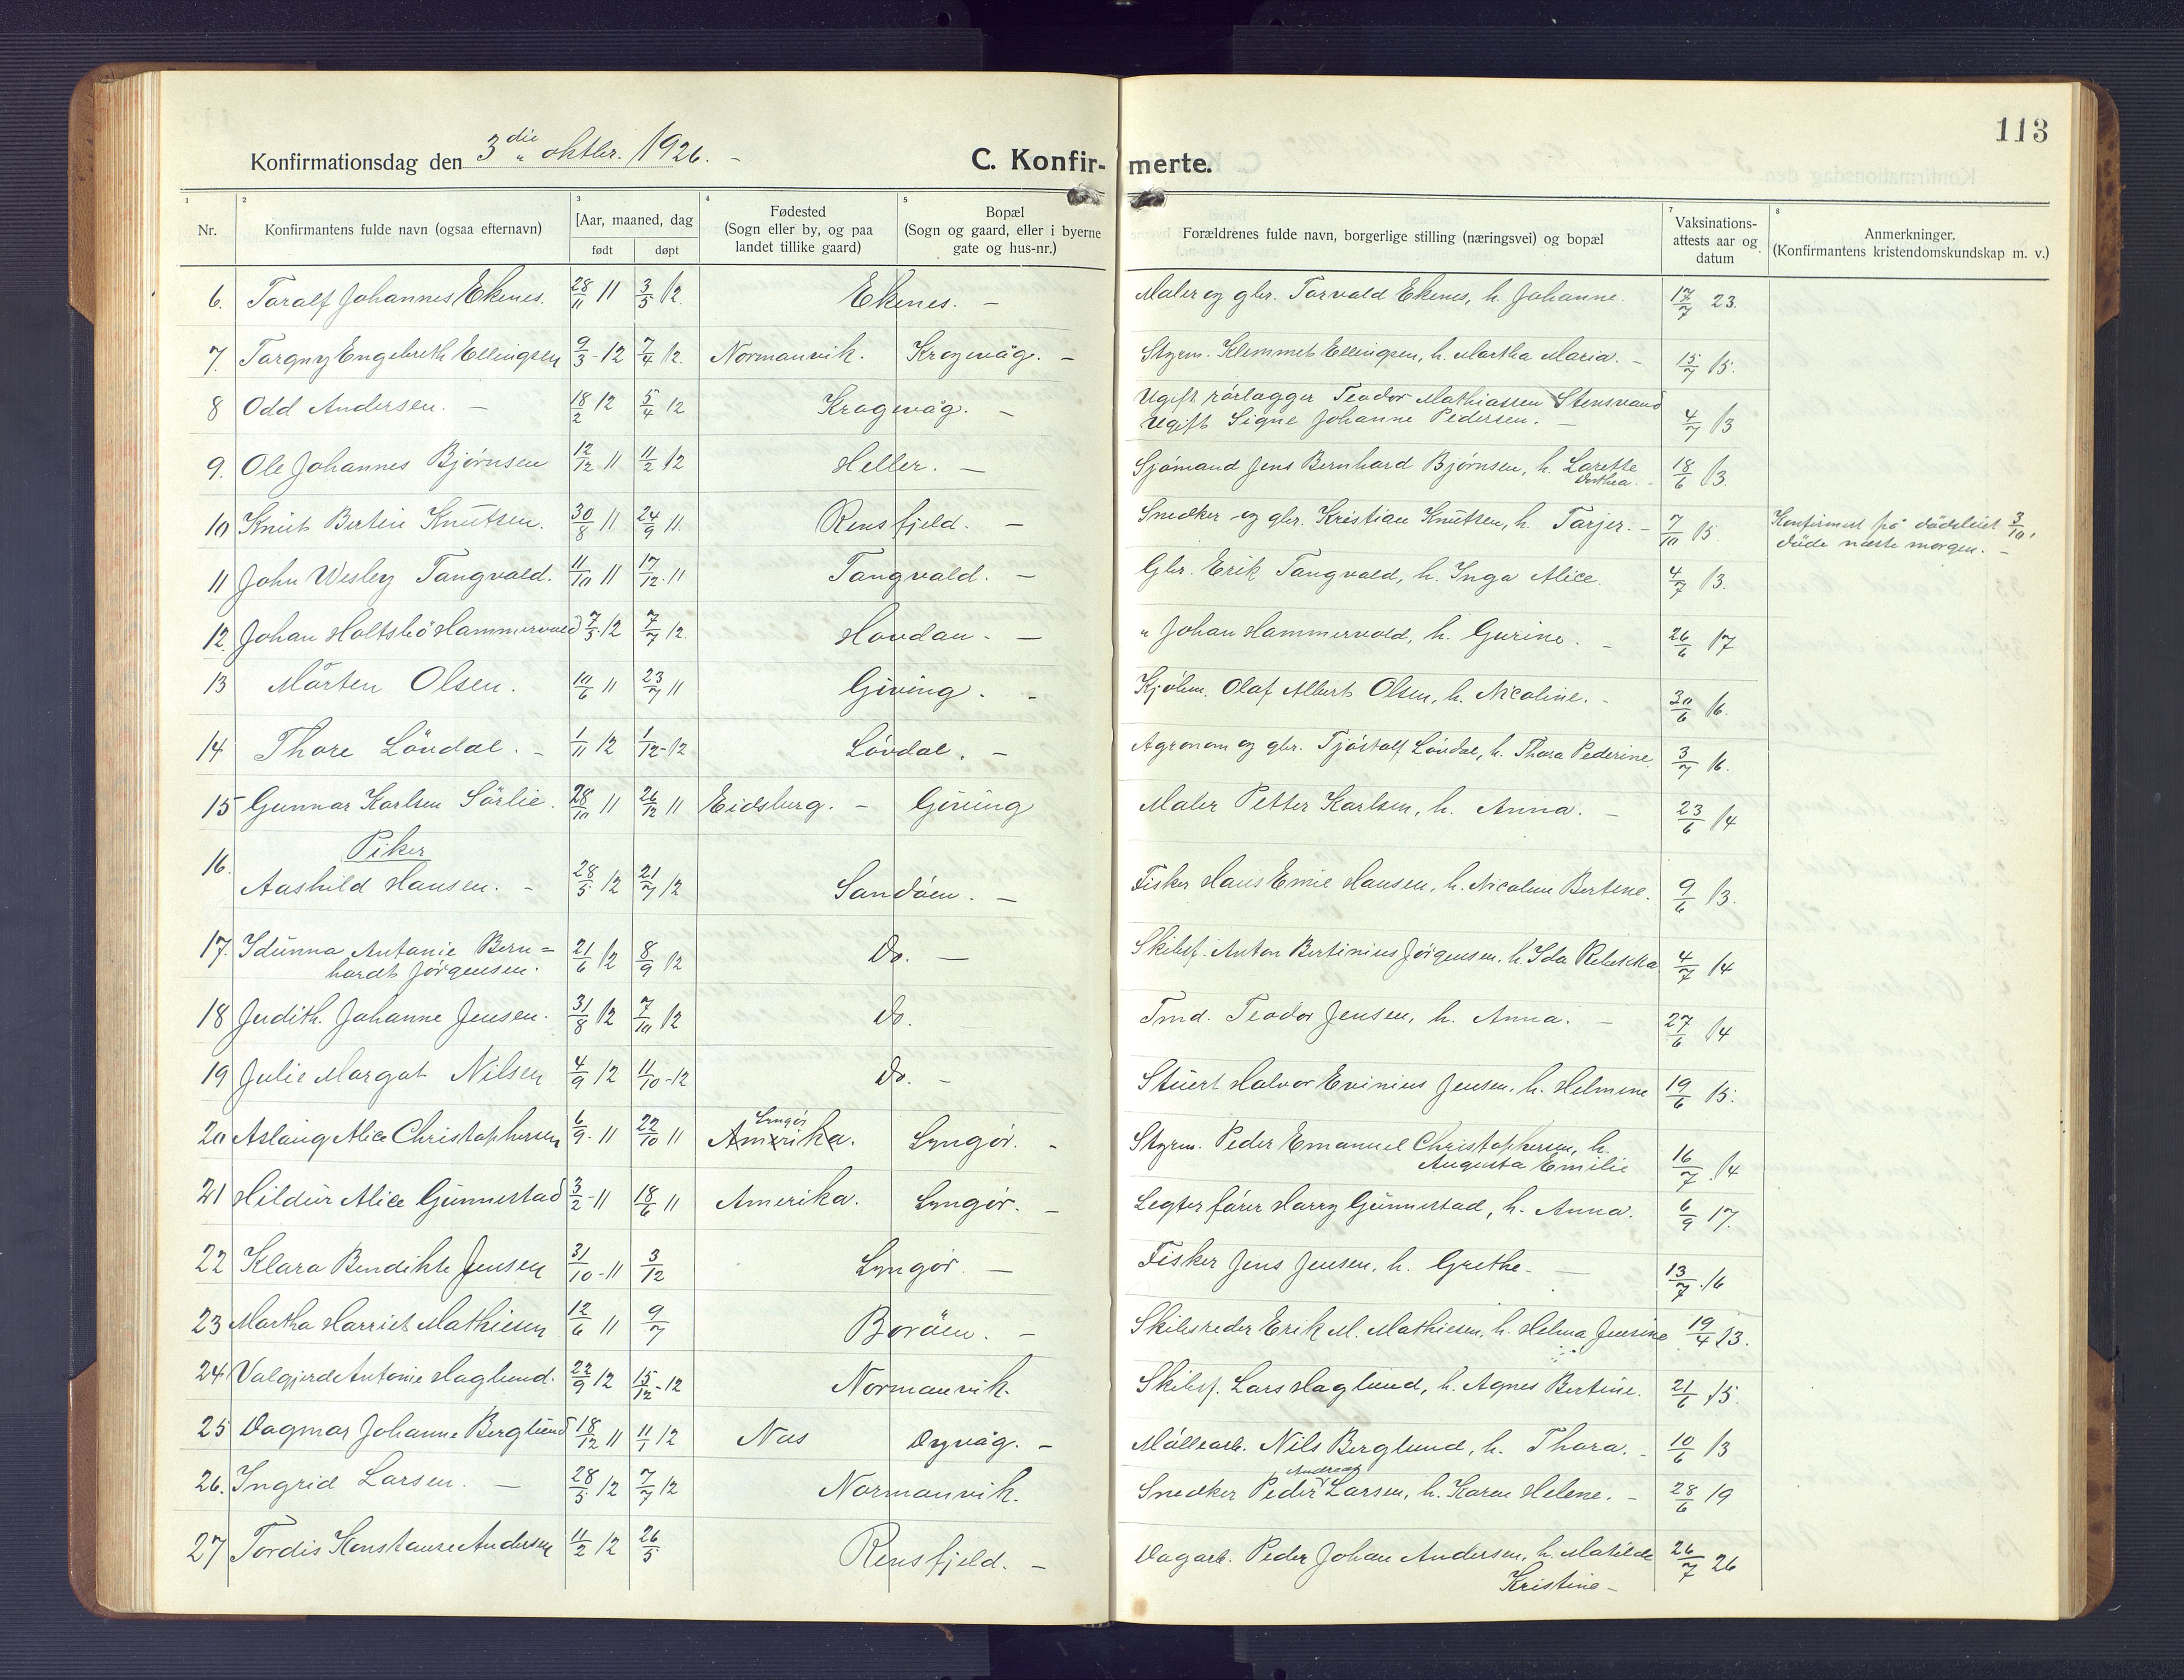 113
Konfirmationsdag den 3die oktbr. 1926. -
C. Konfir- merte.
1 2 3 4 5 7 8
Nr. Konfirmantens fulde navn (ogsaa efternavn) [Aar, maaned, dag født døpt Fødested (Sogn eller by, og paa landet tillike gaard) Bopæl (Sogn og gaard, eller i byerne gate og hus-nr.) Forældrenes fulde navn, borgerlige stilling (næringsvei) og bopæl Vaksinations-attests aar og datum Anmerkninger. (Konfirmantens kristendomskundskap m. v.)
6. Toralf Johannes Ekenes. 28/11 11 3/5 12. Ekenes. - Maler og gbr. Torvald Ekenes, h. Johanne. 17/7 23.
7. Torgny Engebreth Ellingsen 9/3-12 7/4 12. Normanvik. Krogevåg. - Styrm. Klemmet Ellingsen, h. Martha Maria. - 15/7 15.
8 Odd Andersen. - 18/2 12 5/4 12 Krogevåg. - Ugift rörlægger Teodor Mathiassen Stensvand
Ugift Signe Johanne Pedersen. - 4/7 13
9. Ole Johannes Bjørnsen 12/12 11 11/2 12 Heller. - Sjömand Jens Bernhard Bjørnsen, h. Lorette
Dorthea. 18/6 13.
10 Knut Bertin Knutsen. 30/8 11 24/9 11. Rensfjeld. - Snedker og gbr. Kristian Knutsen, h. Tarjer. - 7/10 15. Konfirmert på dödsleiet 3/10,
döde næste morgen. -
11 John Wesley Tangvald. 11/10 11 17/12. 11 Tangvald. - Gbr. Erik Tangvald, h. Inga Alice. 4/7 13.
12. Johan Holtskö Hammervold 7/5. 12 7/7 12. Hovdan. - " Johan Hammervold, h. Gurine. - 26/6 17
13 Mårten Olsen. 10/6 11 23/7 11 Giving. - Kjölm. Olaf Albert Olsen, h. Nicoline. - 30/6 16.
14 Thore Lövdal. - 1/11 12 1/12-12 Lövdal. - Agronom og gbr. Tjöstolf Lövdal, h. Thora Pederine 3/7 16.
15 Gunnar Karlsen Sörlie. 28/10 11 26/12 11 Eidsburg. - Giving Maler Petter Karlsen, h. Anna. - 23/6 14
Piker
16. Aashild Hansen. - 28/5 12 21/7 12 Sandöen. - Fisker Hans Emil Hansen, h. Nicoline Bertine. 9/6 13.
17. Idunna Antonie Bern=
hardt Jörgensen. 21/6 12 8/9 12 Do. - Skibsf. Anton Bertinius Jörgensen. h. Ida Rebekka 4/7 14
18 Judith. Johanne Jensen. 31/8 12 7/10 12 Do. Tmd. Teodor Jensen, h. Anna. - 27/6 14
19 Julie Margot Nilsen 4/9 12 11/10-12 Do. - Stuert Halvor Evinius Jensen, h. Helmine 19/6 15.
20 Aslaug Alice Christophersen 6/9. 11 22/10 11 Lyngör Amerika. Lyngör. - Styrm. Peder Emanuel Christophersen, h.
Augusta Emilie 16/7. 14
21 Hildur Alice Gunnestad 3/2-11 18/6 11 Amerika. Lyngör. - Legter förer Harry Gunnestad, h. Anna. 6/9 17.
22 Klara Bendikte Jensen 31/10-11 3/12 Lyngör. - Fisker Jens Jensen. h. Grethe. - 13/7. 16
23 Martha Harriet Mathiesen 12/6 11 9/7 Boröen. - Skibsreder Erik M. Mathiesen, h. Helma Jensine 19/4 13.
24 Valgjerd Antonie Haglund. 22/9 12 15/12-12 Normanvik. Skibsf. Lars Haglund, h. Agnes Bertine. 21/6 15.
25 Dagmar Johanne Berglund 18/12 11 11/1 12 Nes Dyvåg. - Möllearb. Nils Berglund, h. Thora. - 10/6 13
26. Ingrid Larsen. - 28/5 12 7/7 12 Normanvik. Snedker Peder Andreas Larsen, h. Karen Helene. - 28/6 19
27 Tordis Konstanse Andersen 11/2 12 26/5 Rensfjeld. - Dagarb. Peder Johan Andersen, h. Matilde
Kristine - 26/7 26